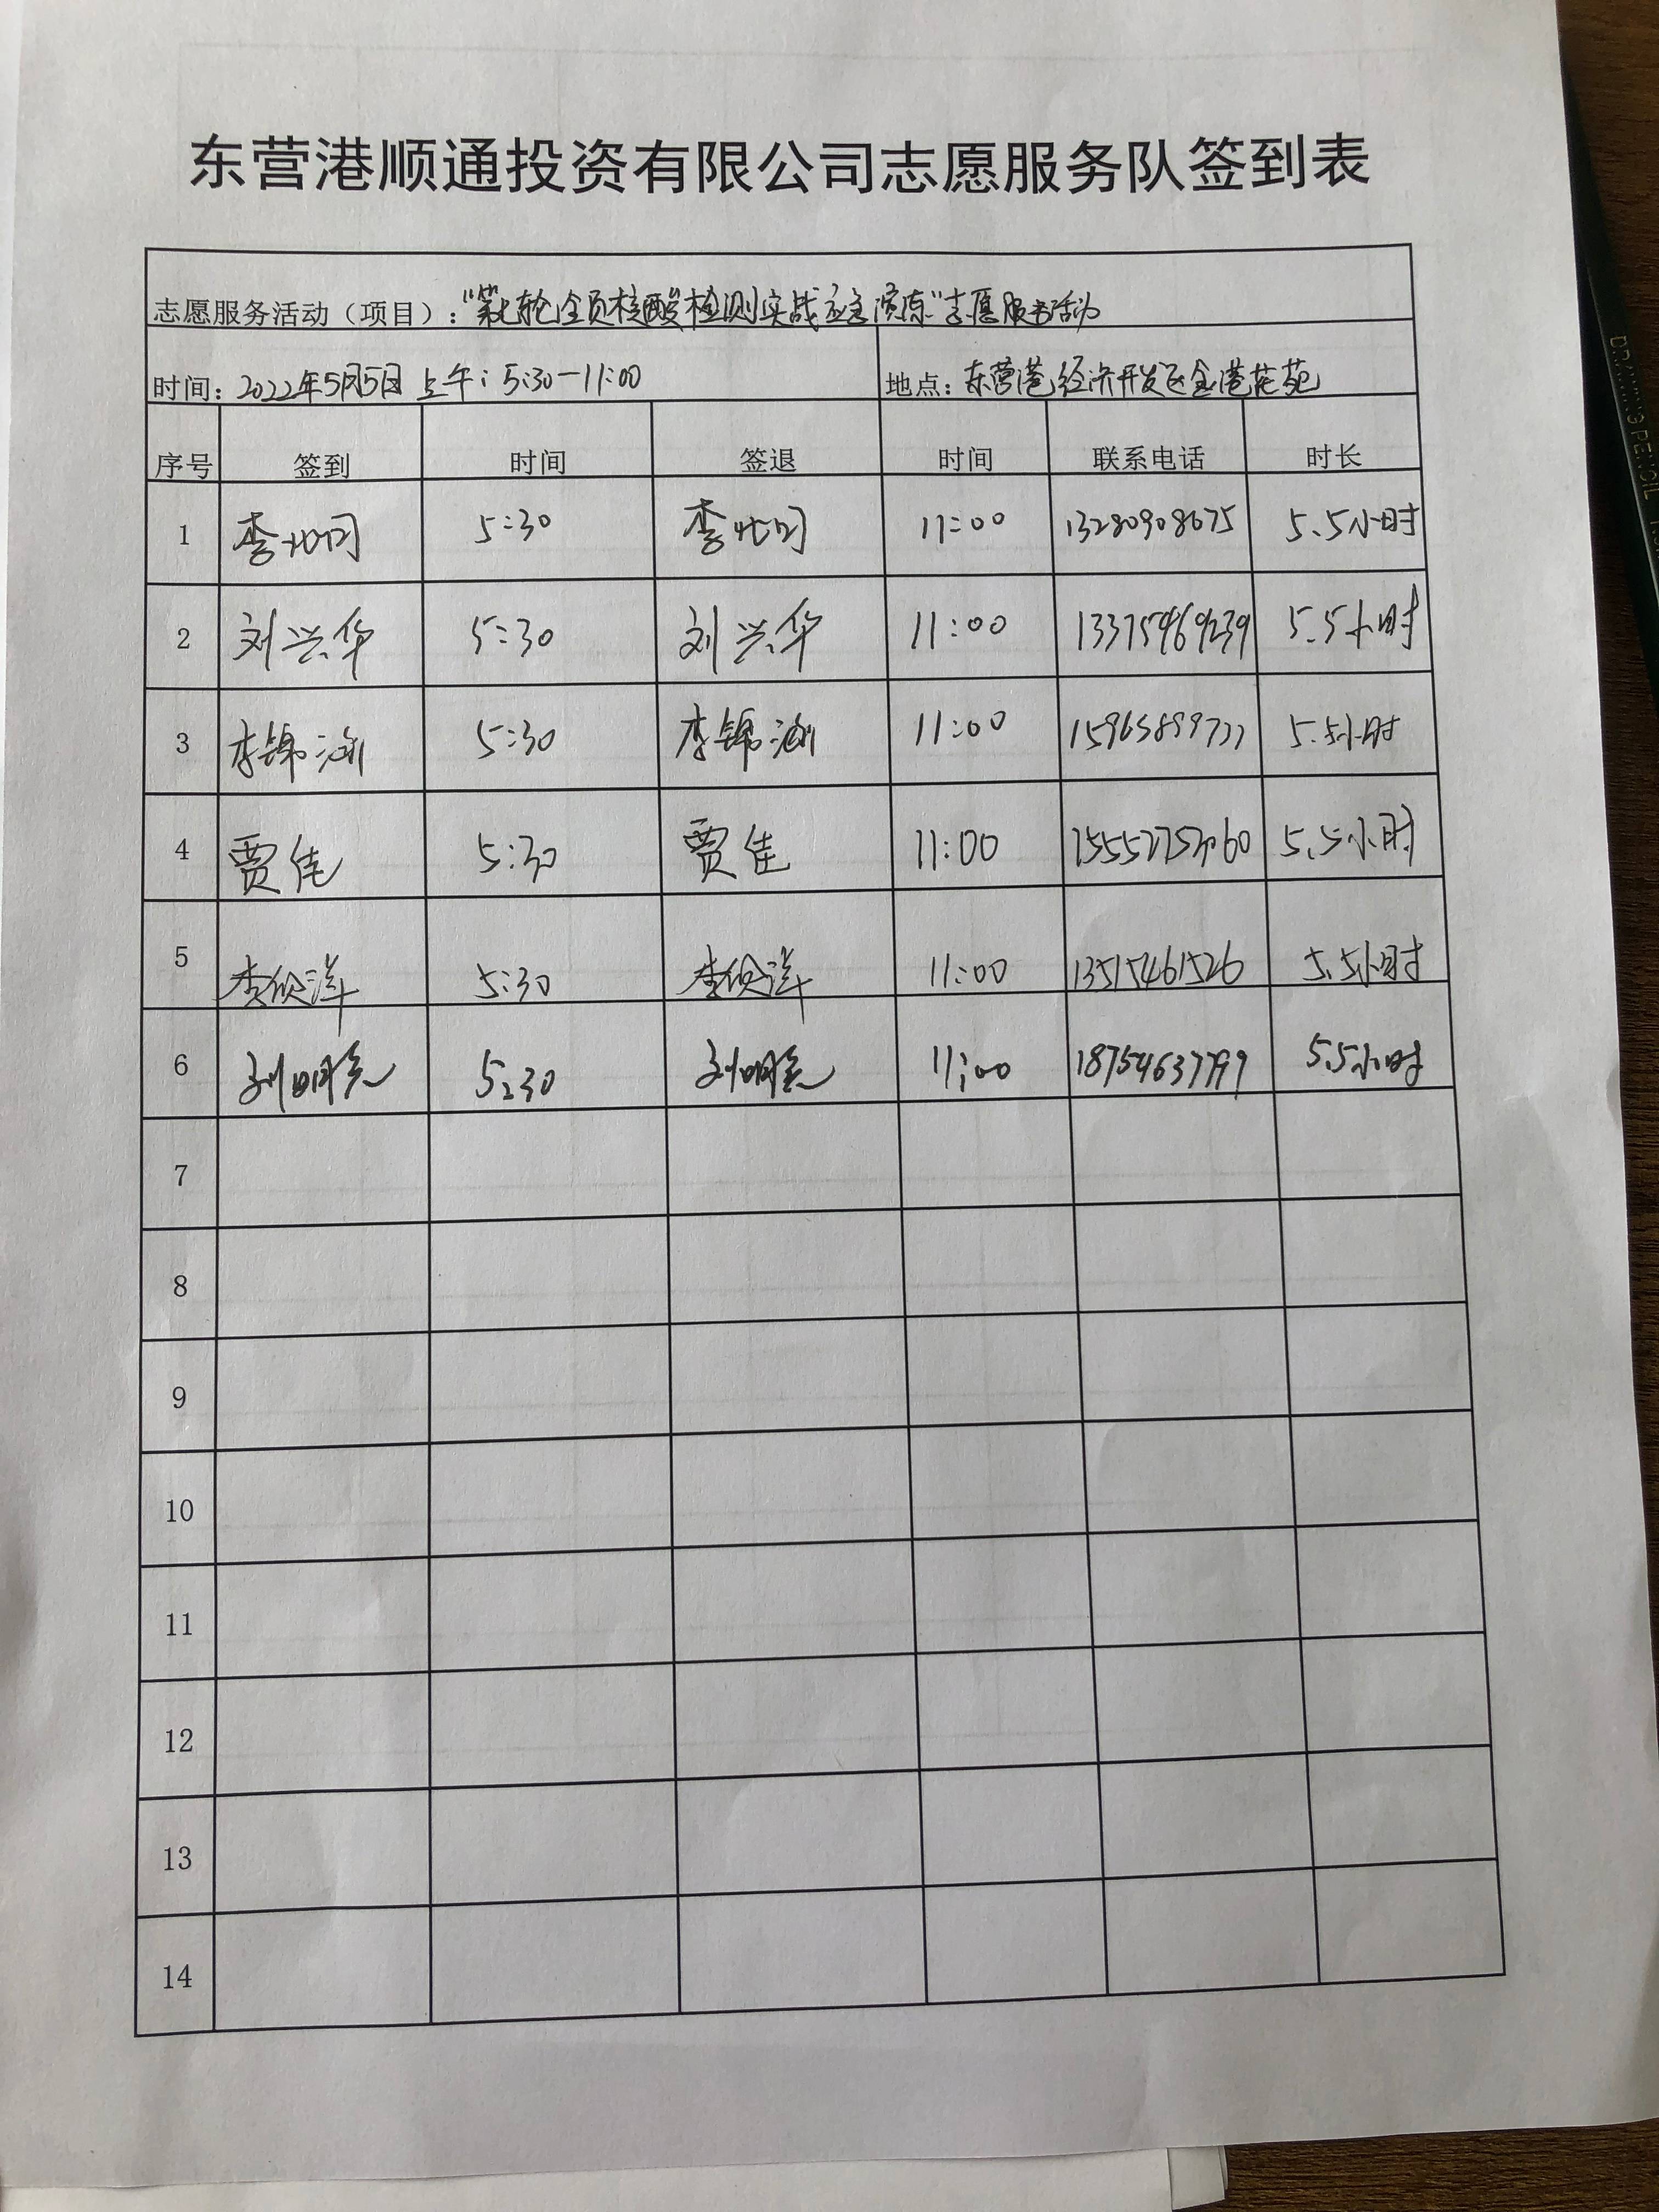 东营港顺通投资有限公司志愿服务队签到表
志愿服务活动（项目）：“第七轮全员核酸检测实战应急演练”志愿服务活动
时间：2022年5月5日 上午：5:30-11:00 地点：东营港经济开发区金港花苑
序号 签到 时间 签退 时间 联系电话 时长
1 5:30 11:00 13280908675 5.5小时
2 刘兴华 5:30 刘兴华 11:00 5.5小时
3 5:30 11:00 5.5小时
4 贾佳 5:30 贾佳 11:00 5.5小时
5 5:30 11:00 13515461526 5.5小时
6 5:30 11:00 5.5小时
7
8
9
10
11
12
13
14
DRAWING PENCIL